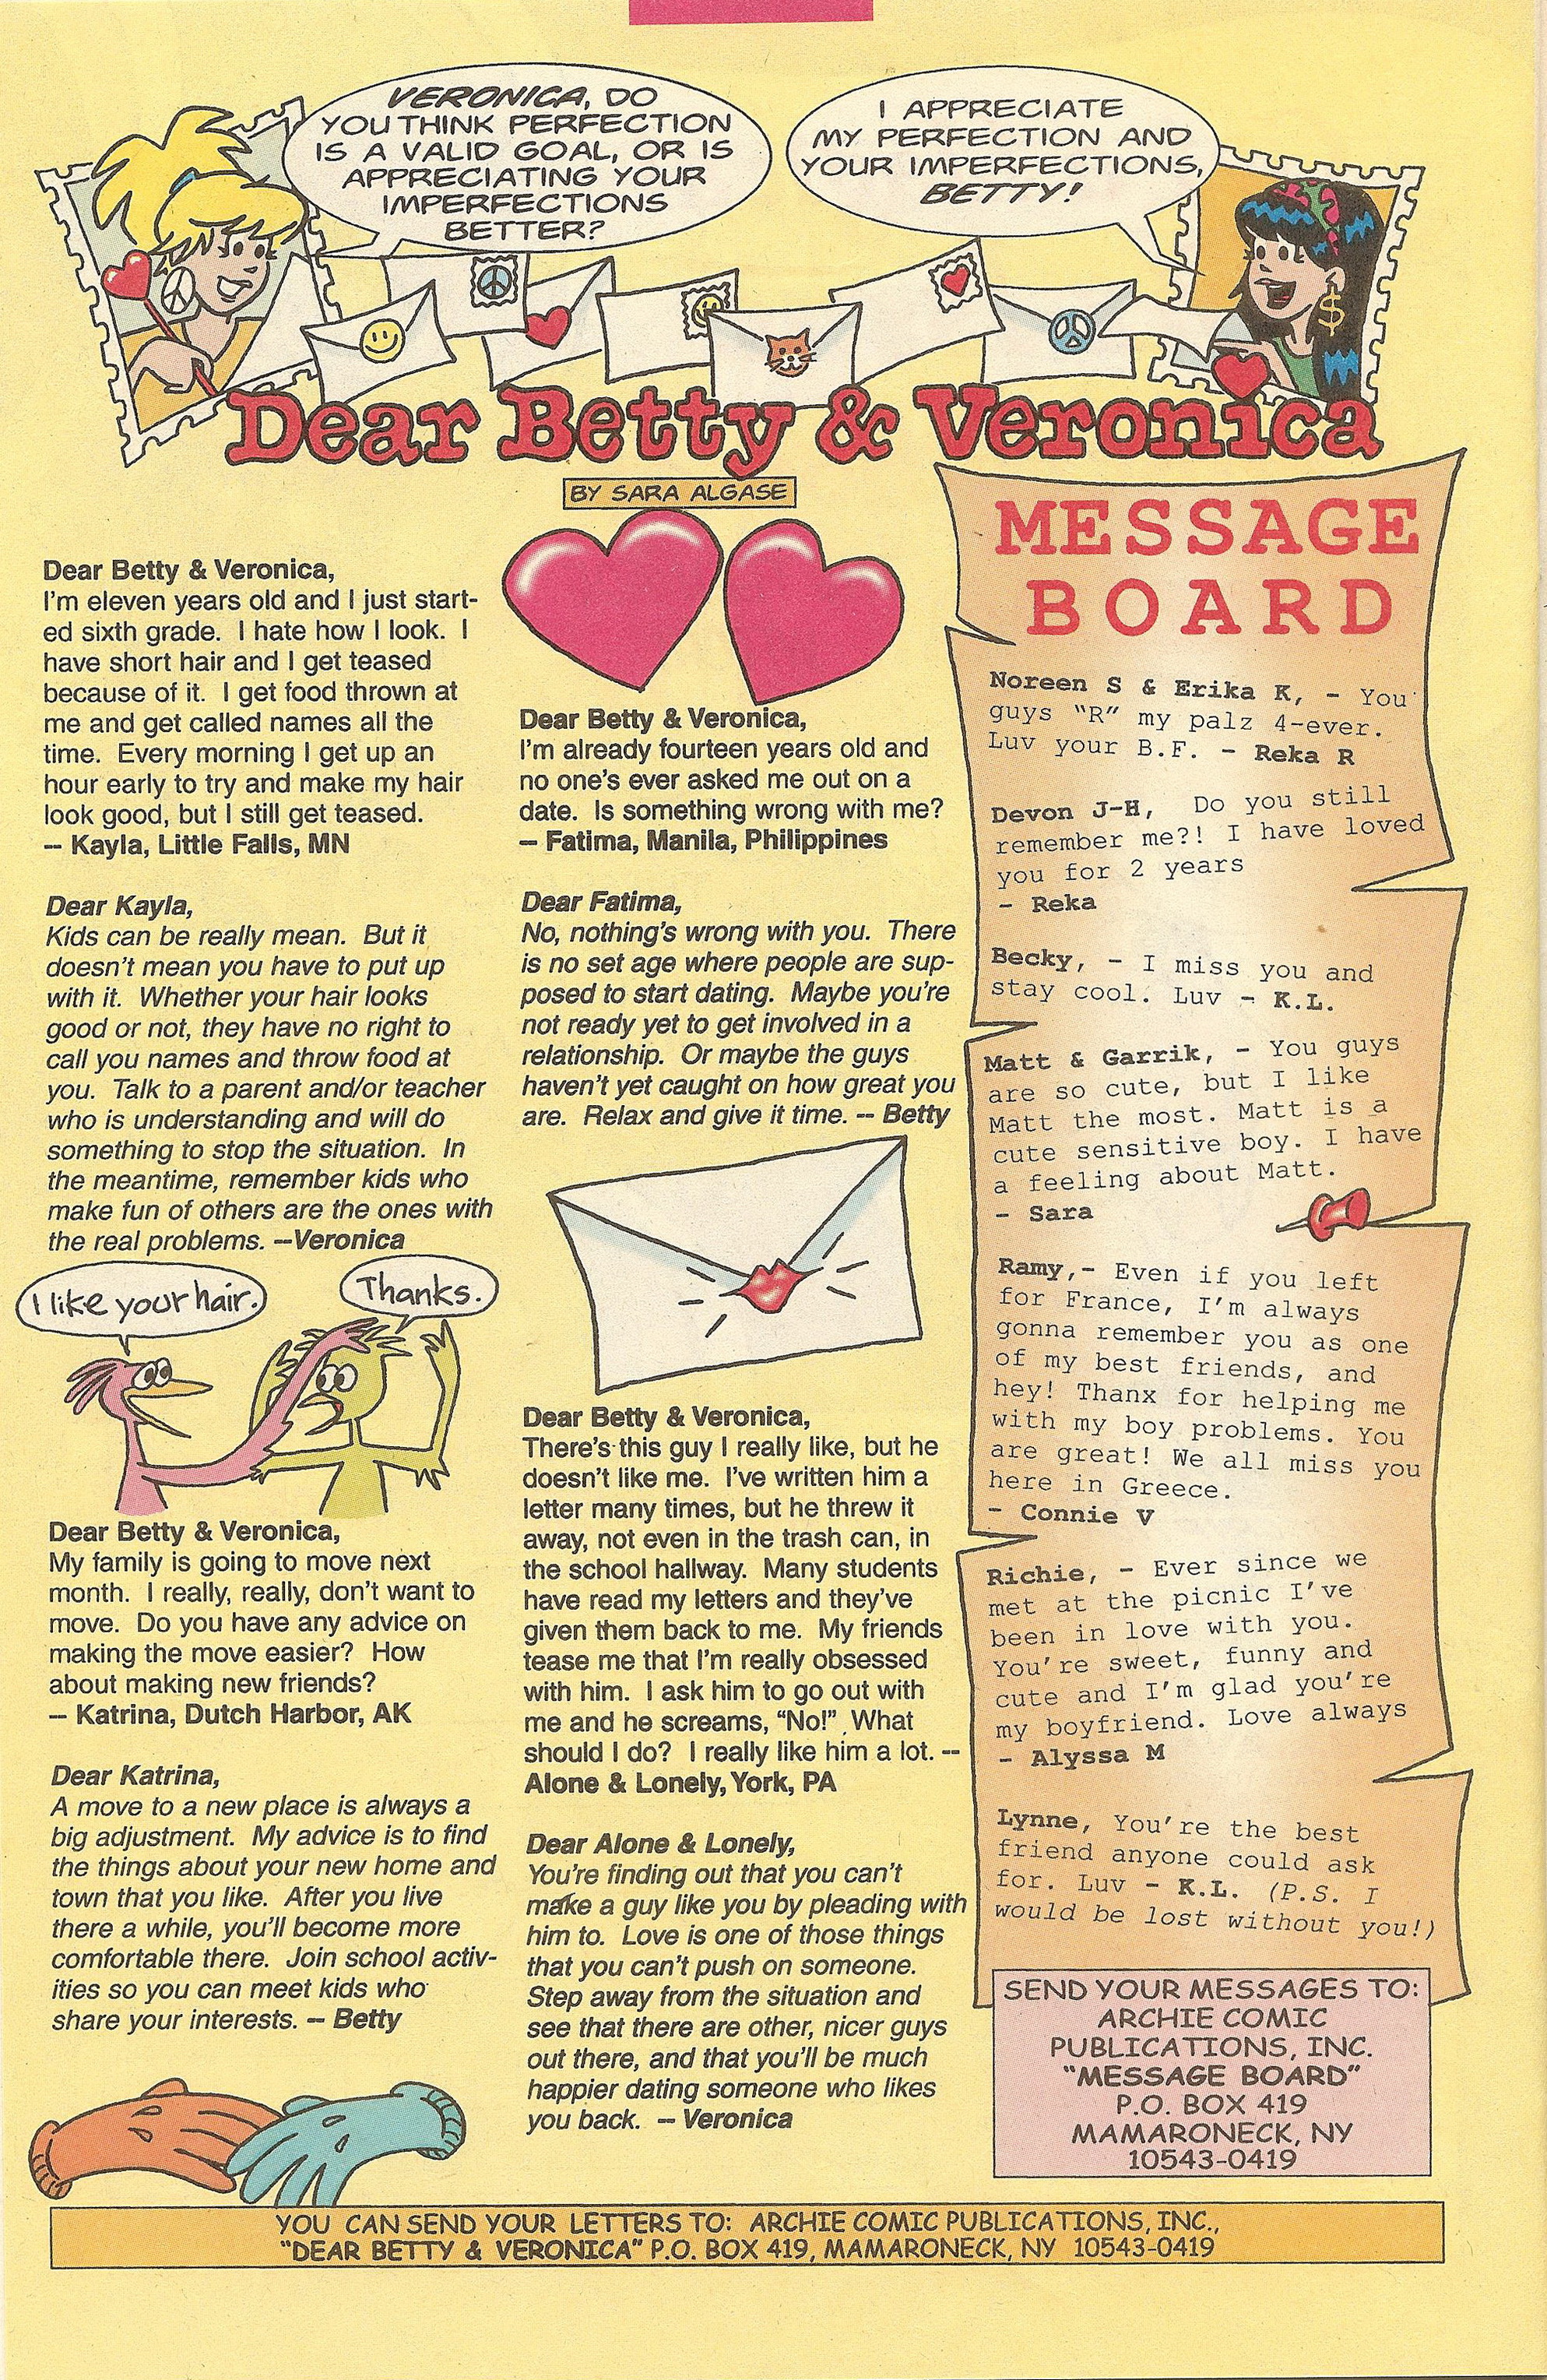 VERONICA, DO
YOU THINK PERFECTION
IS A VALID GOAL, OR IS
APPRECIATING YOUR
IMPERFECTIONS
BETTER?
I APPRECIATE
MY PERFECTION AND
YOUR IMPERFECTIONS,
BETTY!
$
Dear Betty & Veronica
BY SARA ALGASE
Dear Betty & Veronica,
I'm eleven years old and I just start-
ed sixth grade. I hate how I look. I
have short hair and I get teased
because of it. I get food thrown at
me and get called names all the
time. Every morning I get up an
hour early to try and make my hair
look good, but I still get teased.
-- Kayla, Little Falls, MN
Dear Kayla,
Kids can be really mean. But it
doesn't mean you have to put up
with it. Whether your hair looks
good or not, they have no right to
call you names and throw food at
you. Talk to a parent and/or teacher
who is understanding and will do
something to stop the situation. In
the meantime, remember kids who
make fun of others are the ones with
the real problems. --Veronica
I like your hair.
Thanks.
Dear Betty & Veronica,
My family is going to move next
month. I really, really, don't want to
move. Do you have any advice on
making the move easier? How
about making new friends?
-- Katrina, Dutch Harbor, AK
Dear Katrina,
A move to a new place is always a
big adjustment. My advice is to find
the things about your new home and
town that you like. After you live
there a while, you'll become more
comfortable there. Join school activ-
ities so you can meet kids who
share your interests. -- Betty
Dear Betty & Veronica,
I'm already fourteen years old and
no one's ever asked me out on a
date. Is something wrong with me?
-- Fatima, Manila, Philippines
Dear Fatima,
No, nothing's wrong with you. There
is no set age where people are sup-
posed to start dating. Maybe you're
not ready yet to get involved in a
relationship. Or maybe the guys
haven't yet caught on how great you
are. Relax and give it time. -- Betty
Dear Betty & Veronica,
There's this guy I really like, but he
doesn't like me. I've written him a
letter many times, but he threw it
away, not even in the trash can, in
the school hallway. Many students
have read my letters and they've
given them back to me. My friends
tease me that I'm really obsessed
with him. I ask him to go out with
me and he screams, "No!" What
should I do? I really like him a lot. --
Alone & Lonely, York, PA
Dear Alone & Lonely,
You're finding out that you can't
make a guy like you by pleading with
him to. Love is one of those things
that you can't push on someone.
Step away from the situation and
see that there are other, nicer guys
out there, and that you'll be much
happier dating someone who likes
you back. -- Veronica
MESSAGE
BOARD
Noreen S & Erika K, - You
guys "R" my palz 4-ever.
Luv your B.F. - Reka R
Devon J-H, Do you still
remember me?! I have loved
you for 2 years
- Reka
Becky, - I miss you and
stay cool. Luv - K.L.
Matt & Garrik, - You guys
are so cute, but I like
Matt the most. Matt is a
cute sensitive boy. I have
a feeling about Matt.
- Sara
Ramy,- Even if you left
for France, I'm always
gonna remember you as one
of my best friends, and
hey! Thanx for helping me
with my boy problems. You
are great! We all miss you
here in Greece.
- Connie V
Richie, - Ever since we
met at the picnic I've
been in love with you.
You're sweet, funny and
cute and I'm glad you're
my boyfriend. Love always
- Alyssa M
Lynne, You're the best
friend anyone could ask
for. Luv - K.L. (P.S. I
would be lost without you!)
SEND YOUR MESSAGES TO:
ARCHIE COMIC
PUBLICATIONS, INC.
"MESSAGE BOARD"
P.O. BOX 419
MAMARONECK, NY
10543-0419
YOU CAN SEND YOUR LETTERS TO: ARCHIE COMIC PUBLICATIONS, INC.,
"DEAR BETTY & VERONICA" P.O. BOX 419, MAMARONECK, NY 10543-0419